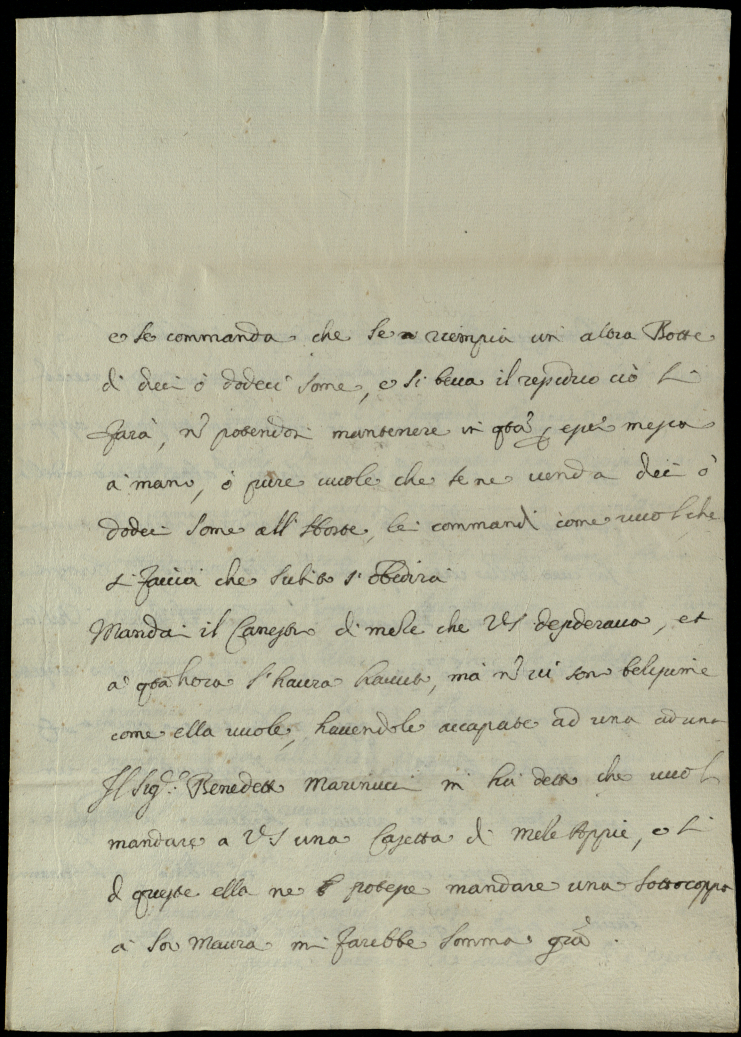 e se commanda che se n riempia un altra Botte
di dieci ò dodeci some, e si beva il residuo ciò si
farà, nō potendosi mantenere in qta esser messa
a mano, ò pure vuole che se ne venda dieci ò
dodeci some all' Hoste, lei commandi come vuol che
si faccia che subito s' obedirà
Mandai il Canestro di mele che VS desiderava, et
a' qta hora l' havra havuto, mà nō vi sono belissime
come ella vuole, havendole accapate ad una ad una
Il Sig.r Benedetto Marinucci mi hà detto che vuol
mandare a VS una Casetta di mele Appie, e se
di queste ella ne potesse mandare una sottocoppa
à Sor Maura mi farebbe somma grã.